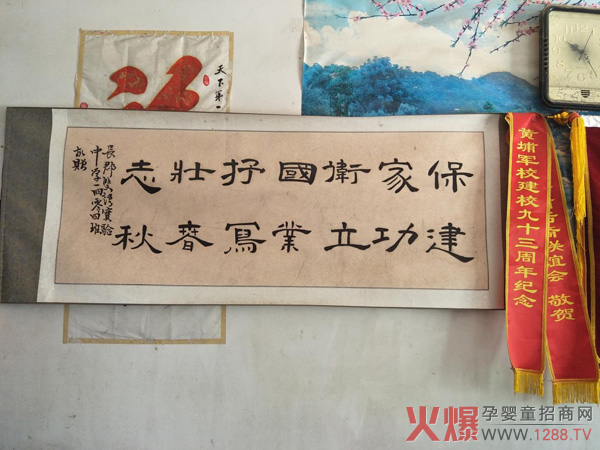 天下第
保家衛國抒壯志
建功立業寫春秋
長郡雙語實驗
中學一四零四班
敬贈
黄埔军校建校九十三周年纪念
联谊会 敬贺
火爆孕婴童招商网
www.1288.TV